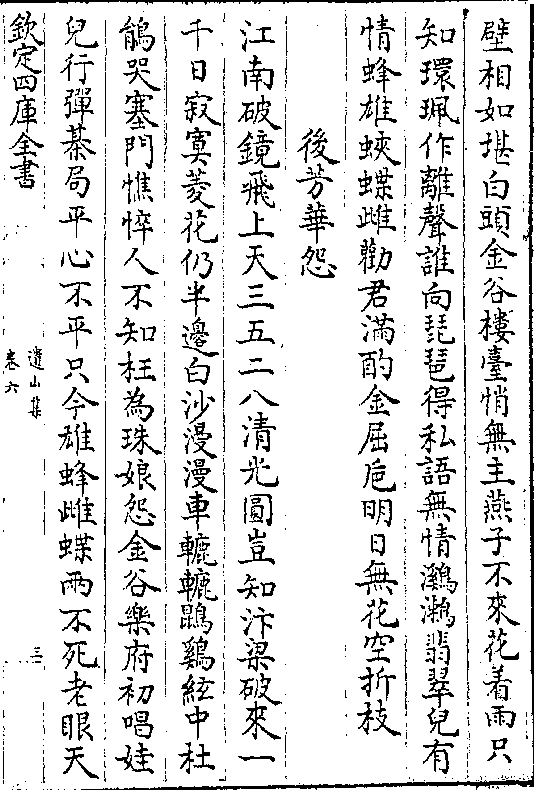 壁相如堪白頭金谷樓臺悄無主燕子不來花着雨只
知環珮作離聲誰向琵琶得私語無情鸂鶒翡翠兒有
情蜂雄蛺蝶雌勸君滿酌金屈卮明日無花空折枝
後芳華怨
江南破鏡飛上天三五二八清光圓豈知汴梁破來一
千日寂寞菱花仍半邊白沙漫漫車轆轆鵾鷄絃中杜
鵑哭塞門憔悴人不知枉為珠娘怨金谷樂府初唱娃
兒行彈棊局平心不平只今雄蜂雌蝶兩不死老眼天
欽定四庫全書
遺山集
卷六
三